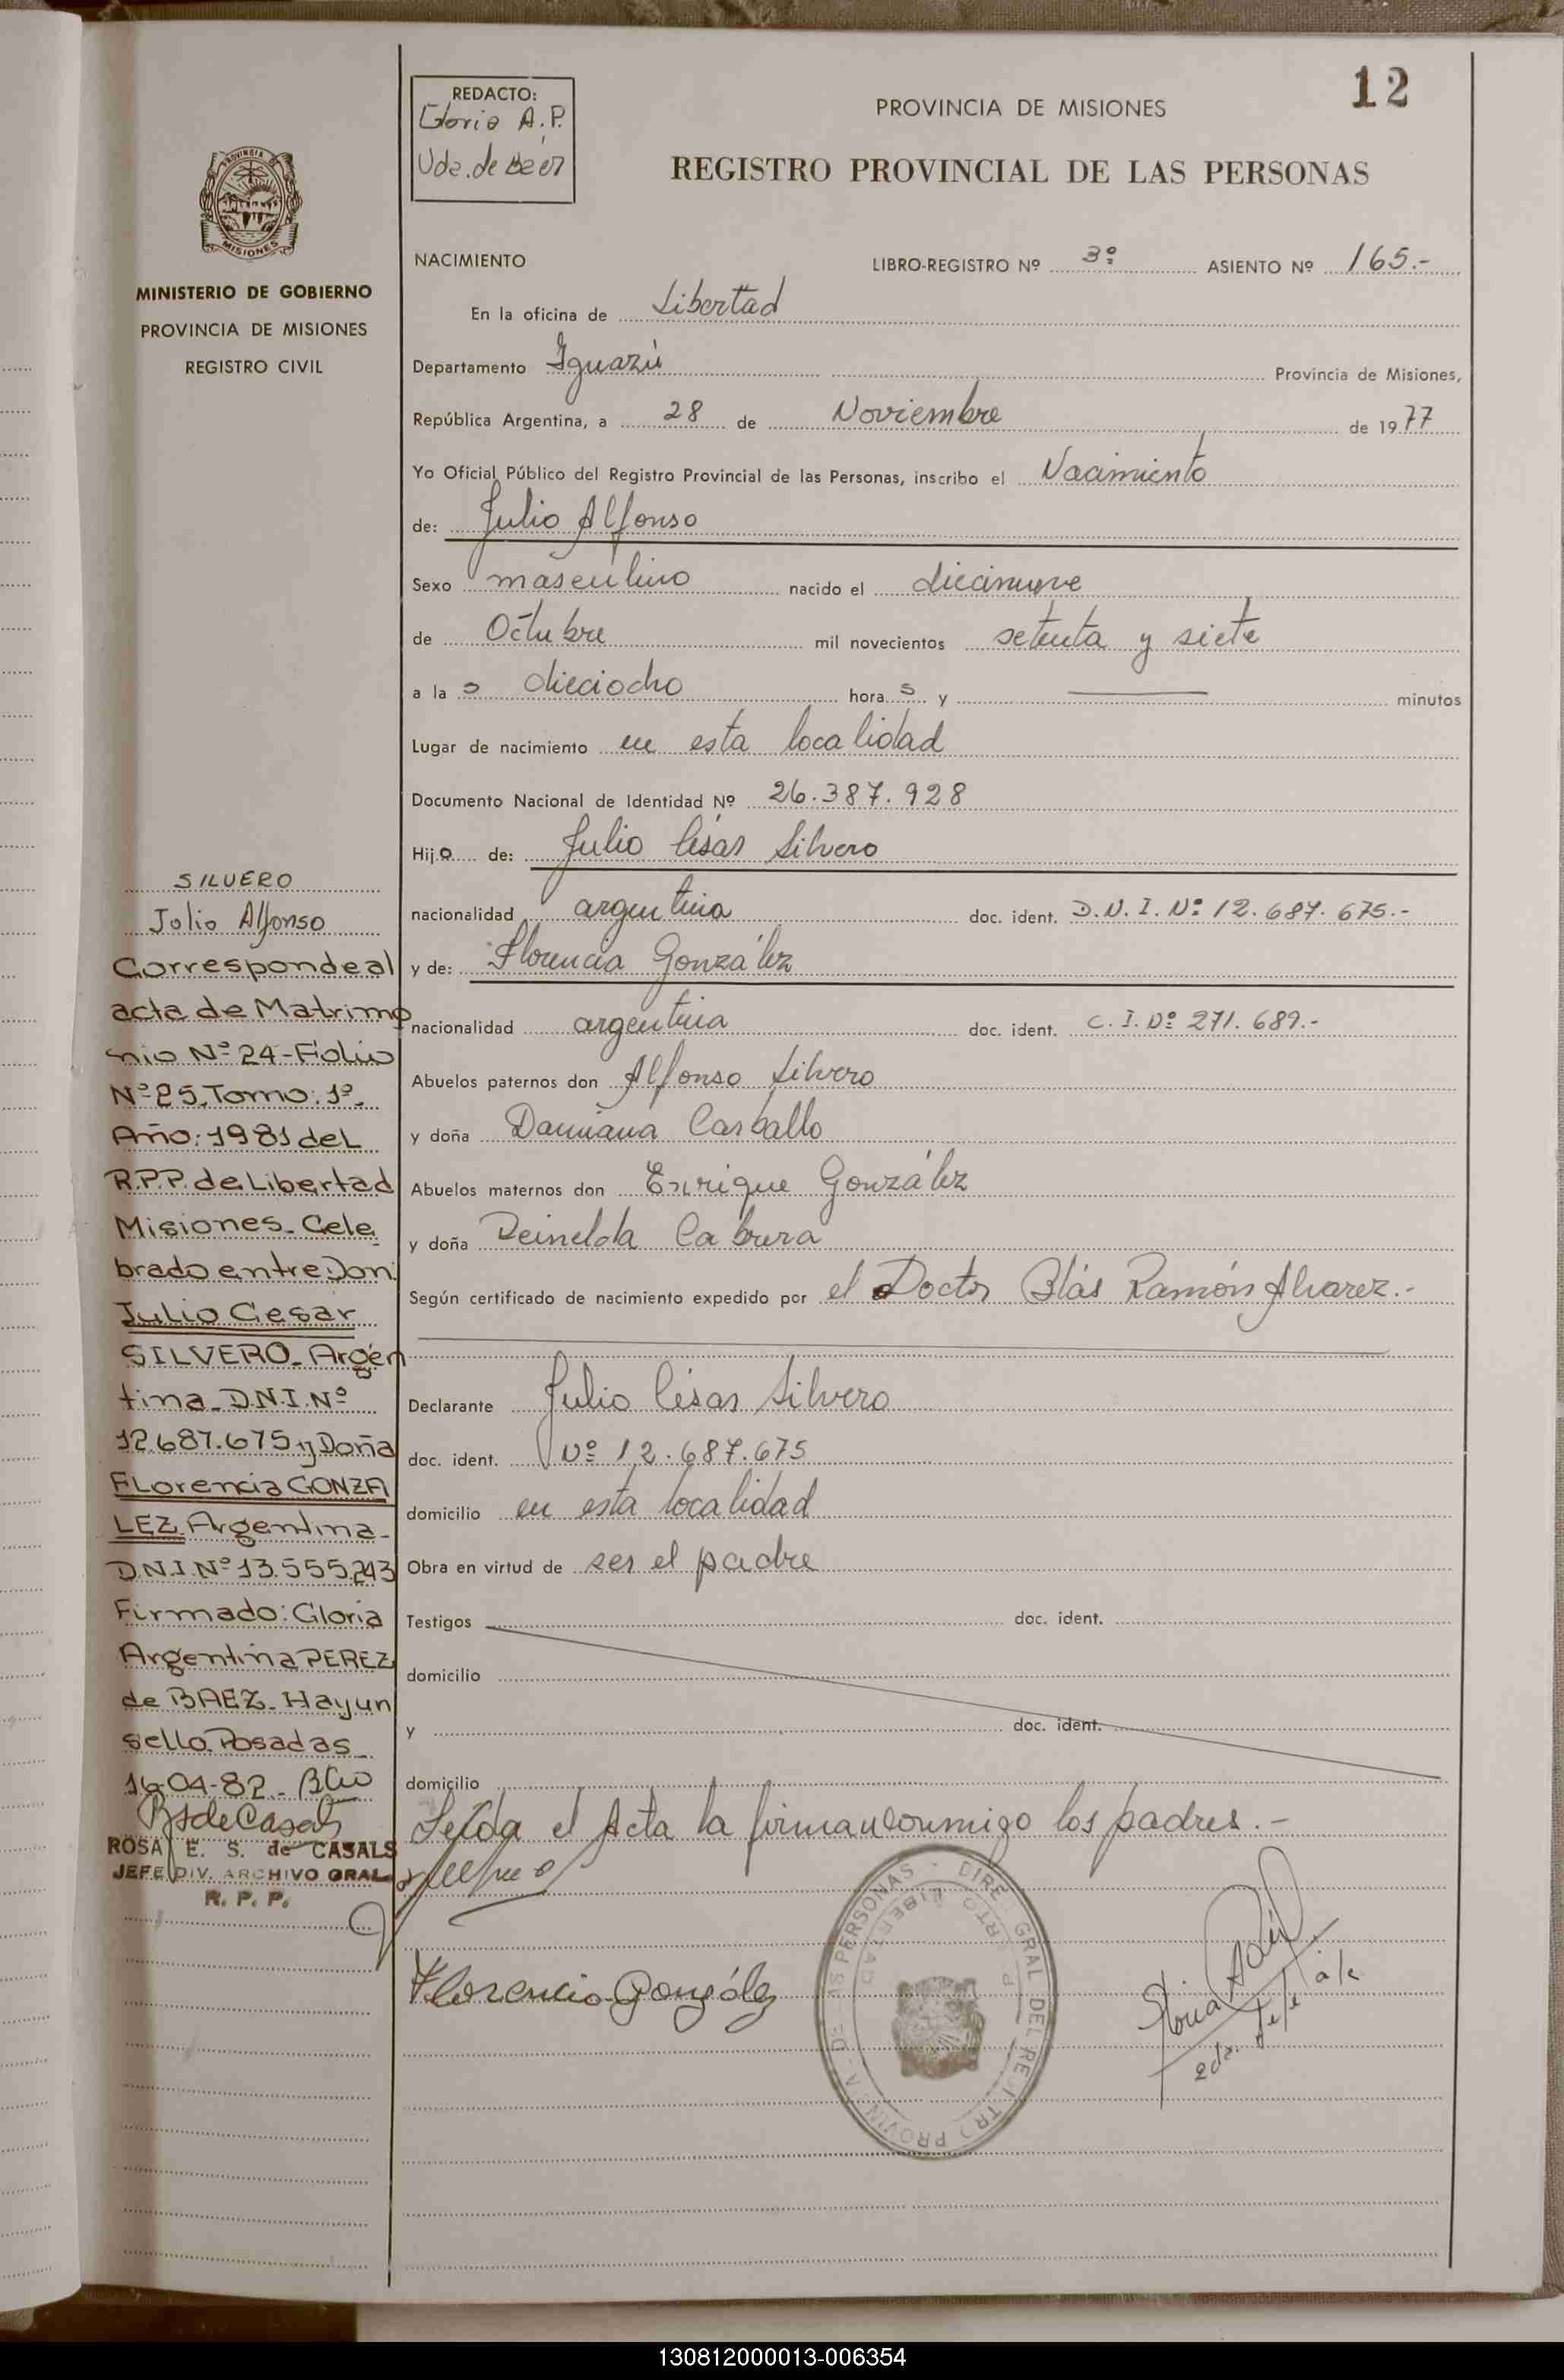 12
REDACTO:
Gloria A.P.
Vda. de Baez
PROVINCIA DE MISIONES
REGISTRO PROVINCIAL DE LAS PERSONAS
PROVINCIA DE
MISIONES
MINISTERIO DE GOBIERNO
PROVINCIA DE MISIONES
REGISTRO CIVIL
NACIMIENTO LIBRO-REGISTRO Nº 3º ASIENTO Nº 165.-
En la oficina de Libertad
Departamento Iguazú Provincia de Misiones,
República Argentina, a 28 de Noviembre de 1977
Yo Oficial Público del Registro Provincial de las Personas, inscribo el Nacimiento
de: Julio Alfonso
Sexo masculino nacido el diecinueve
de Octubre mil novecientos setenta y siete
a la s dieciocho hora s y minutos
Lugar de nacimiento en esta localidad
Documento Nacional de Identidad Nº 26.387.928
Hijo de: Julio César Silvero
nacionalidad argentina doc. ident. D.N.I. Nº 12.687.675.-
y de: Florencia González
nacionalidad argentina doc. ident. C.I. Nº 271.689.-
Abuelos paternos don Alfonso Silvero
y doña Damiana Carballo
Abuelos maternos don Enrique González
y doña Reinelda Cabrera
Según certificado de nacimiento expedido por el Doctor Blás Ramón Alvarez.-
Declarante Julio César Silvero
doc. ident. Nº 12.687.675
domicilio en esta localidad
Obra en virtud de ser el padre
Testigos doc. ident.
domicilio
y doc. ident.
domicilio
Leída el Acta la firman conmigo los padres.-
Florencia González
2da. Jefe a/c
SILVERO
Julio Alfonso
Corresponde al
acta de Matrimo
nio Nº 24-Folio
Nº 25. Tomo: 1º.
Año: 1981 del
R.P.P. de Libertad
Misiones. Cele
brado entre Don:
Julio Cesar
SILVERO. Argen
tina. D.N.I. Nº
12.687.675 y Doña
Florencia GONZA
LEZ Argentina.
D.N.I. Nº 13.555.243
Firmado: Gloria
Argentina PEREZ
de BAEZ. Hay un
sello. Posadas
16-04-82.
ROSA E. S. de CASALS
JEFE DIV. ARCHIVO GRAL.
R. P. P.
130812000013-006354